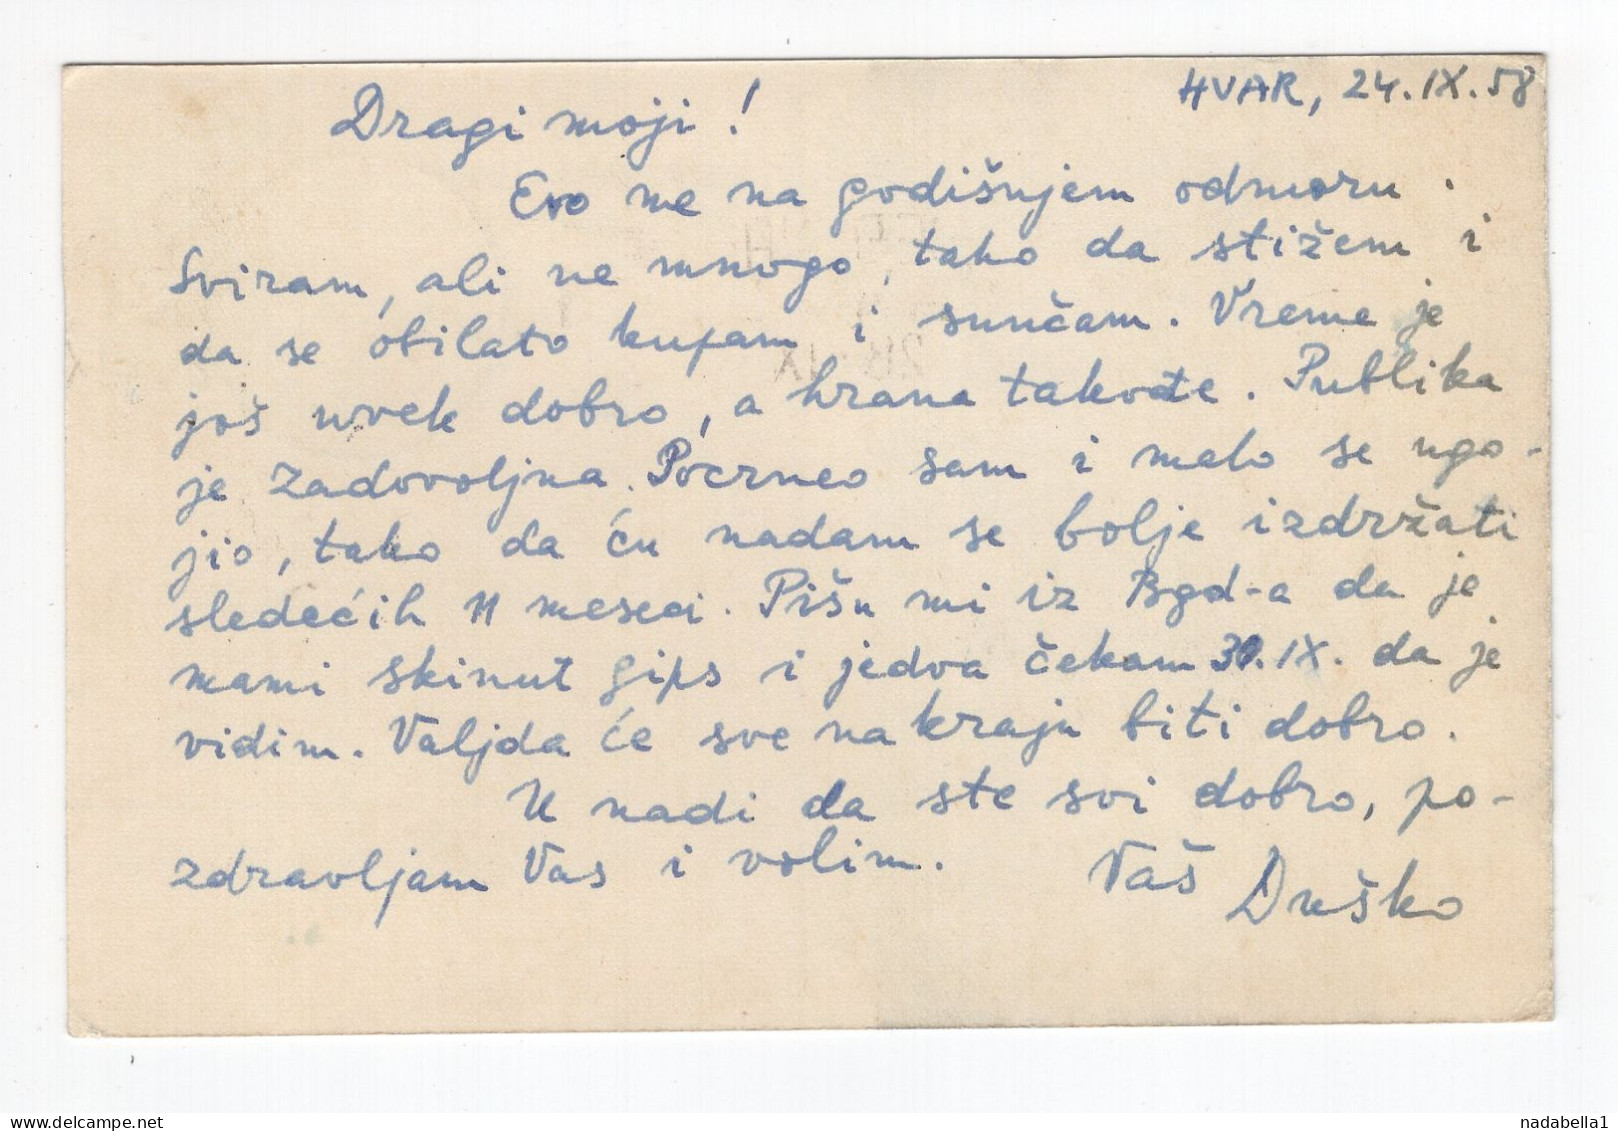 HVAR, 24.IX.58
Dragi moji!
Evo me na godišnjem odmoru.
Sviram, ali ne mnogo, tako da stižem i
da se obilato kupam i sunčam. Vreme je
još uvek dobro, a hrana takođe. Publika
je zadovoljna. Pocrneo sam i malo se ugo-
jio, tako da ću nadam se bolje izdržati
sledećih 11 meseci. Pišu mi iz Bgd-a da je
mami skinut gips i jedva čekam 30.IX. da je
vidim. Valjda će sve na kraju biti dobro.
U nadi da ste svi dobro, po-
zdravljam Vas i volim. Vaš
Duško
nadabella1